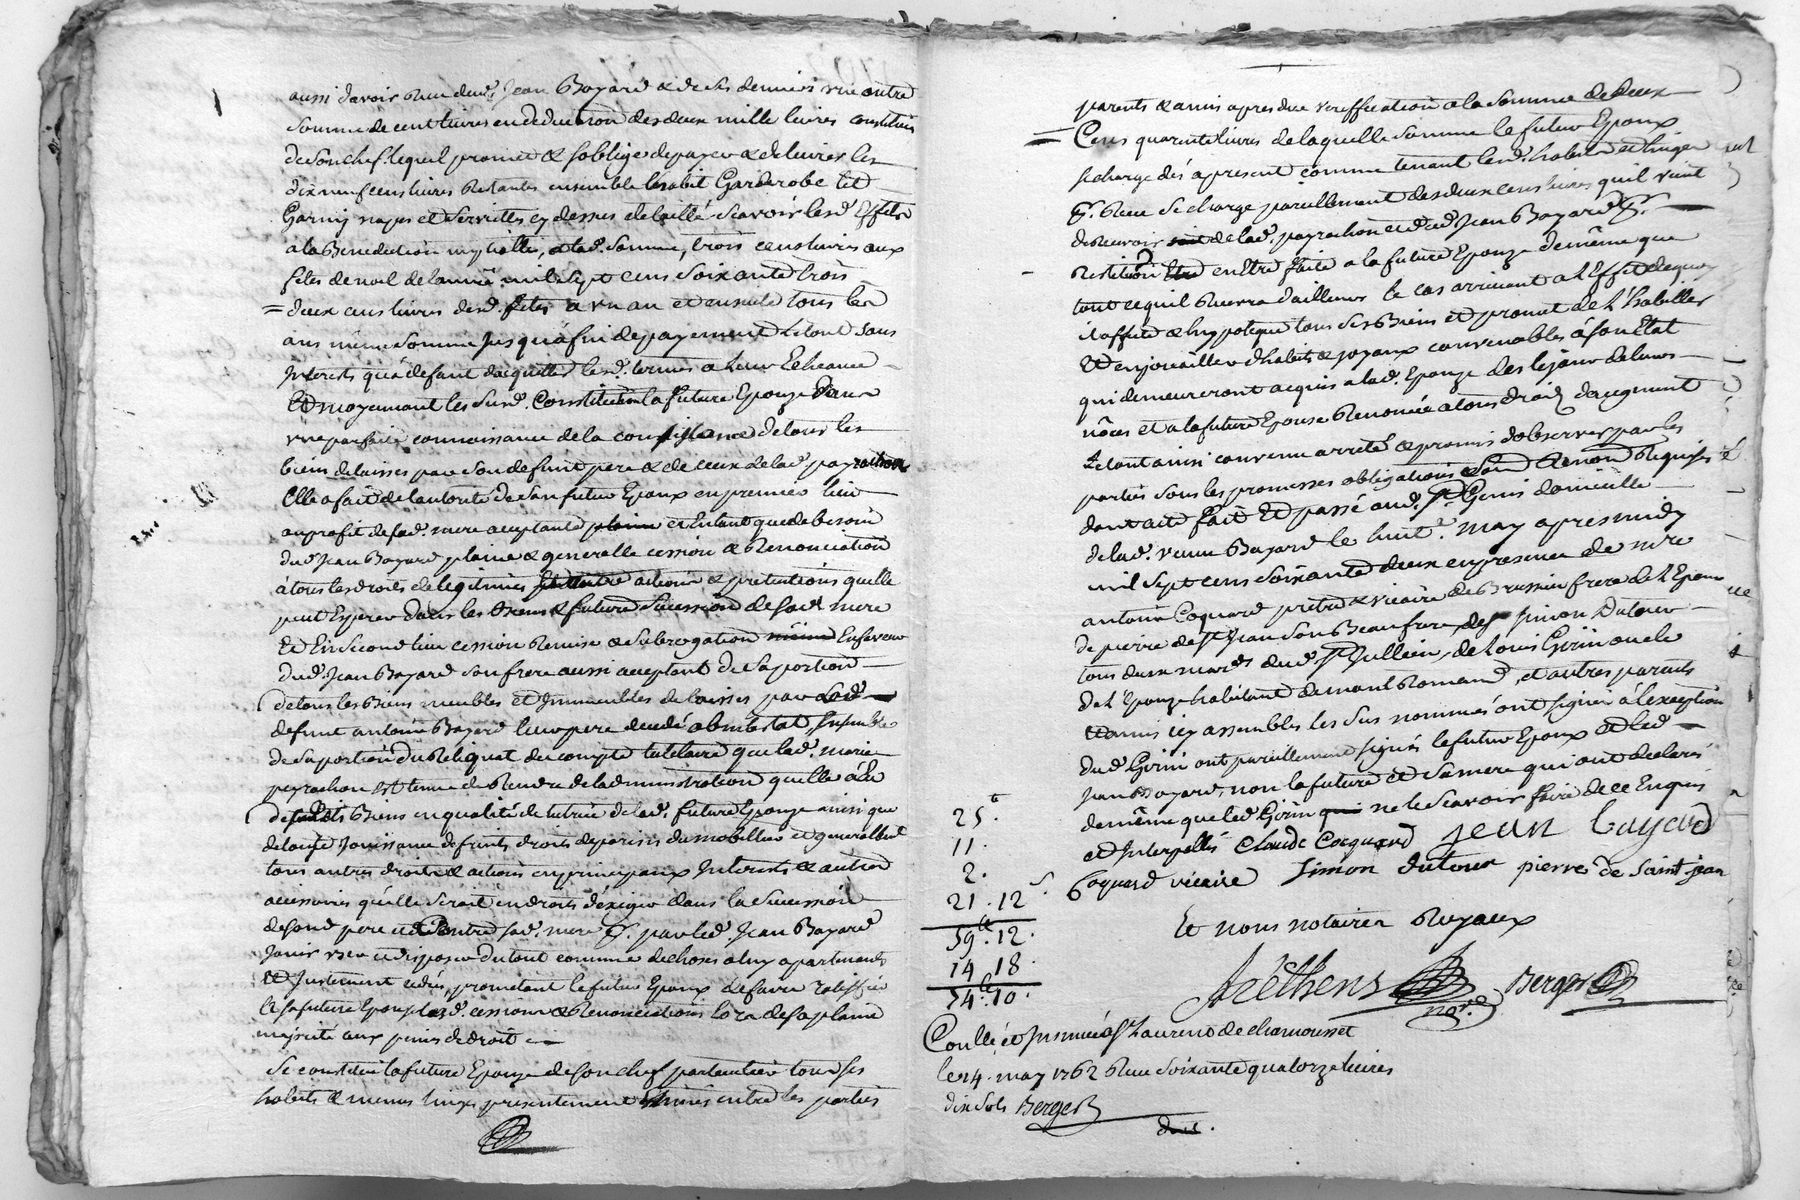 aussi d'avoir Receu dud. Jean Bayard & de ses deniers une autre
somme de cent livres en deduction des deux mille livres constitués
de son chef lequel promet & s'obblige de payer & delivrer les
dix neuf cens livres Restantes ensemble habit Garderobe lit
Garniy napes et Serviettes cy dessus detaillé Scavoir lesd. Effets
a la Benediction nuptialle, & lad. Somme, trois cens livres aux
fetes de noel de l'année mil Sept cens Soixante trois
= deux cens livres desd. fetes a un an et ensuite tous les
ans même somme jusqu'à fin de payement Le tout sans
Interets qu'a defaut d'acquitter lesd. termes a leur Echeance
Et moyennant les Susd. Constitution la future Epouze dans
une parfaite connoissance de la consistance de tous les
biens delaisses par son defunt pere & de ceux de lad. payrachon
Elle a fait de l'autorité de son futur Epoux en premier lieu
au profit de sad. mere acceptante et Entant que de besoin
dud. Jean Bayard plaine & generalle cession & Renonciation
à tous les droits de legitimes actions & pretentions quelle
peut Esperer dans les Biens & future Sucession de sad. mere
Et En Second lieu cession Remise & Subrogation En faveur
dud. Jean Bayard son frere aussi acceptant de Sa portion
de tous les Biens meubles et Immeubles delaisses par Led.
defunt antoine Bayard leur pere decedé abintestat, Ensemble
de Sa portion du Reliquat du compte tutelaire que lad. marie
peyrachon est tenue de Rendre de l'administration quelle à Eu
desdits Biens en qualité de tutrice de lad. future Epouze ainsi que
de toute Jouissance de fruits droits de parisis du mobillier et generallement
tous autres droits & actions en principaux Interets & autres
accessoires quelle Seroit en droits d'exiger dans la Sucession
de sond. pere et Contre sad. mere pr. par led. Jean Bayard
Jouir user et disposer du tout comme de choses a luy apartenants
Et Justement cedées, promettant le futur Epoux de faire ratiffier
a sa future Epouze lesd. cessions & Renonciations lors de sa plaine
majorité aux peines de droit
Se constitue la future Epouze de son chef particulier tous ses
habits & menus linges presentement Estimés entre les parties
parents & amis apres due veriffication a la Somme de deux
= Cens quarente livres de laquelle somme le futur Epoux
se charge dés apresent comme tenant lesd. habits et linges
pr. Receu Se charge pareillement des deux cens livres quil vient
de Recevoir de lad. payrachon et dud. Jean Bayard pr.
Restition en Etre faite a la future Epouze de même que
tout ce quil Recevra d'ailleurs le cas arrivant a L'Effet de quoy
il affecte & hypoteque tous Ses Biens et promet de L'habiller
Et enjouailler d'habits & joyaux convenables à son Etat
qui demeureront acquis a lad. Epouze des le jour de leurs
nôces et a la future Epouse Renoncée a tous droits d'augment
Le tout ainsi convenu arreté & promis d'observer par les
parties sous les promesses obligations
dont acte fait Et passé aud. St Genis domicille
de lad. veuve Bayard le huit may apres midy
mil Sept cens Soixante deux en presence de mre
antoine Coquard pretre & vicaire de Brussieu frere de L'Epoux
de pierre de St Jean Son Beau frere, de Simon Dutour
tous deux mards dud. St Jullien, de Louis Girin oncle
de L'Epouze habitant de mont Romand, et autres parents
et amis icy assembles les Sus nommés ont signés à l'exeption
dud. Girin ont pareillement signés le futur Epoux et led.
Jean Bayard, non la future et Sa mere qui ont declarés
de même que led. Girin ne le Scavoir faire de ce Enquis
et Interpellés Claude Coquard jean bayard
Coquard vicaire simon dutour pierre de Saint jean
Et nous notaires Royaux
Berger
25 ᵗᵗ
11.
2.
21. 12 ˢ
59. 12.
14. 18.
74. 10.
Conllé et Insinué à St Laurent de chamousset
le 14. may 1762 Receu Soixante quatorze livres
dix Sols Berger